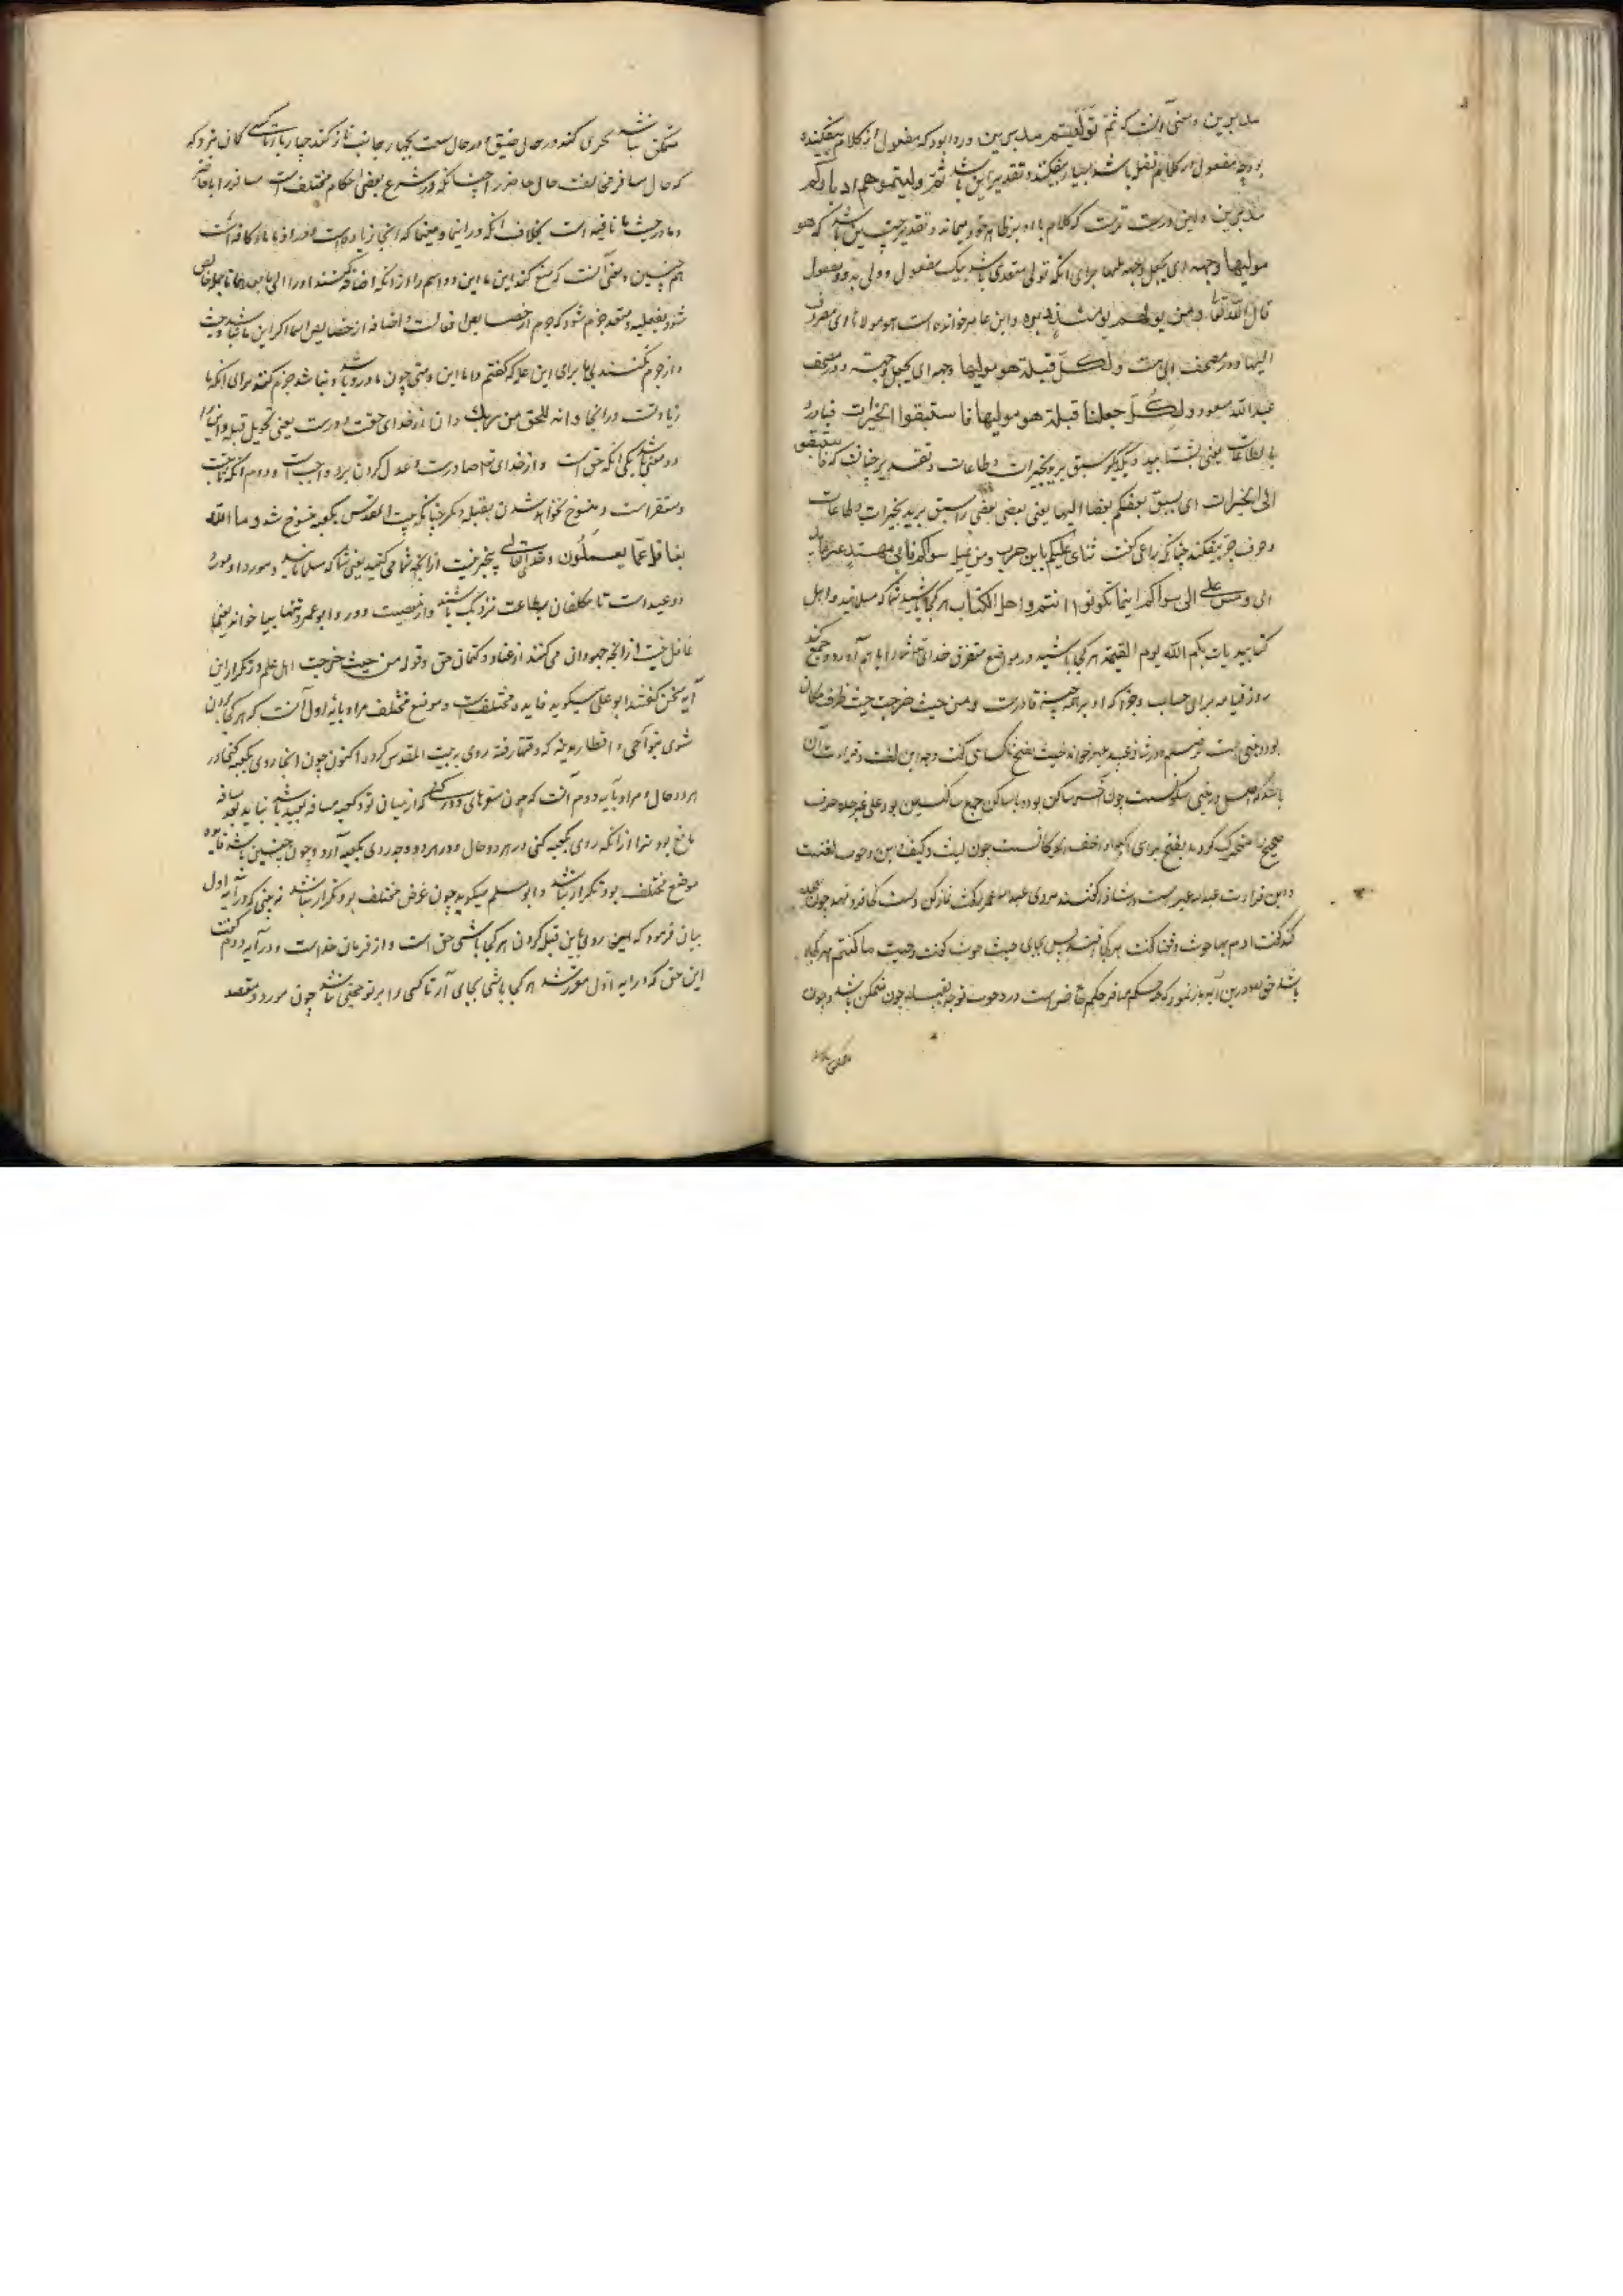 مدبرین و معنی آنست که ثم تولیتم مدبرین و روا بود که مفعول از کلام بیفکنند
بود چه مفعول در کلام فضل باشد بسیار بیفکنند و تقدیر این باشد ثم ولیتموهم ادبارکم
مدبرین و این درست ترست که کلام با او بر ظاهر خود بماند و تقدیر چنین باشد که هو
مولیها وجهه ای یجعل وجهه تلیها برای آنکه تولی متعدی باشد بیک مفعول و ولی بدو مفعول
قال الله تعالی و من یولهم یومئذ دبره و ابن عامر خوانده است هو مولاها ای مصروف
الیها و در مصحف ابی است ولکل قبلة هو مولیها وجهه ای یجعل وجهته و در مصحف
عبدالله مسعود ولکل جعلنا قبلة هو مولیها فاستبقوا الخیرات فبادروا
بالطاعات یعنی بشتابید و یکدیگر سبق برید بخیرات و طاعات و تقدیر چنانست که فاستبقوا
الی الخیرات ای یسبق بعضکم بعضا الیها یعنی بعضی بعضی را سبق برید بخیرات و طاعات
و حرف جر بیفکند چنانکه راعی گفت ثنای علیکم یا ابن حرب و من یمل سواکم فانی مهتد غیر مایل
ای و من یمل الی سواکم اینما تکونوا انتم و اهل الکتاب هر کجا باشید شما که مسلمانید و اهل
کتابید یأت بکم الله یوم القیمة هر کجا باشید در مواضع متفرق خدای تعالی شما را با هم آورد و جمع کند
روز قیامه برای حساب و جزا که او بر همه چیز قادرست و من حیث خرجت حیث ظرف مکان
بود و مبنی است بر ضم و در شاذ عبید عمیر خواند حیث بفتح ثا کسائی گفت وجه این لغت و قراءت آن
باشد که اصل در مبنی سکونست چون آخر ساکن بود و یا ساکن جمع ساکنین بود علی غیر حده حرف
صحیح را متحرک کردند بفتح برای آنکه اخف الحرکاتست چون لیث و کیف این و حوث لغتست
و این قراءت عبدالله عمیرست و شاذ
گفت ادم بها حوث
باشد حق بود درین آیه باز نمود که حکم مسافر حکم حاضر است در وجوب توجه بقبله چون متمکن باشد و چون
متمکن نباشد تحری کند و در حال ضیق و در حال سعت بچهار جانب نماز کند چهار بار تا کسی گمان نبرد که
که حال مسافر مخالف حال حاضر را چنانکه در شرع بعضی احکام مختلف است مسافر را با حاضر
و ما در حیث ما نافیه است بخلاف آنکه در اینما و مهما که آنجا زیادتست و در اذ ما ماء کافه است
همچنین و معنی آنست که منع کند این ما این دو اسم را از آنکه اضافه کنند او را الی ما بعدها تا خالص
شود بفعلیه و معد جزم شود که جزم از خصایص افعالست و اضافه از خصایص اسما اگر این ما نباشد حیث
و اذ جزم نکنند بی ما برای این علة که گفتم و اما این و متی چون ما درو باشد و نباشد جزم کنند برای آنکه ما
زیادتست در آنجا و انه للحق من ربک و آن از خدای حقست و درست یعنی تحویل قبله و این را
دو معنی باشد یکی آنکه حق است و از خدای تعالی صادرست و عدول کردن برو واجب است و دوم آنکه ثابتست
و مستقرست و منسوخ نخواهد شدن بقبله دیگر چنانکه بیت المقدس بکعبه منسوخ شد و ما الله
بغافل عما یعملون و خدای تعالی بیخبر نیست از آنچه شما می‌کنید یعنی شما که مسلمانانید و مورد او مورد
وعید است تا مکلفان بطاعت نزدیک باشند و از معصیت دور و ابو عمرو تنها بیا خواند یعنی خدا
غافل نیست از آنچه جهودان می‌کنند از عناد و کتمان حق و قوله من حیث خرجت اهل علم در تکرار این
آیه سخن گفتند ابو علی میگوید فایده مختلفست و موضع مختلف مراد بآیه اول آنست که هر کجا برون
شوی بنواحی و اقطار مدینه که وقتها رفته روی به بیت المقدس کرده اکنون چون آنجا روی بکعبه کن در
هر دو حال و مراد بآیه دوم آنست که چون سفرهای دور کنی که از میان تو و کعبه مسافه بعید باشد نباید بعد مسافه
مانع بود ترا از آنکه روی بکعبه کنی در هر دو حال و در هر دو وجه روی بکعبه آرد و چون چنین باشد فایده
موضع مختلف بود و تکرار نباشد و ابو مسلم میگوید چون غرض مختلف بود تکرار نباشد نه بینی که در آیه اول
بیان فرمود که این روی باین قبله کردن هر کجا باشی حق است و از فرمان خداست و در آیه دوم گفت
این حق که در آیه اول مقرر شد هر کجا باشی بجای آر تا کسی را بر تو حجتی نباشد چون مورد و مقصد